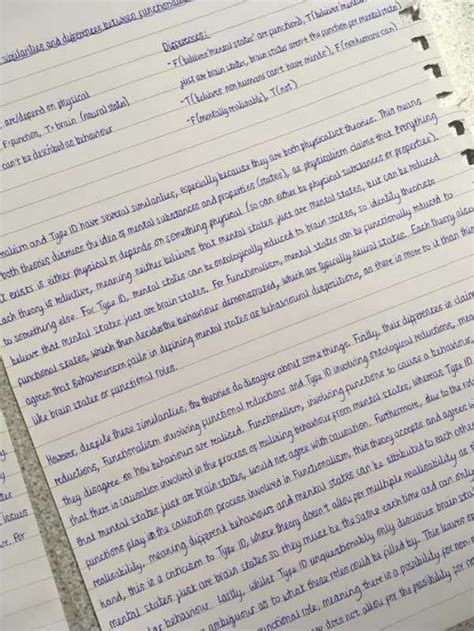 similarities and differences between functionalism
Differences:
- F(believes 'mental states' are functional), T(believes 'mental
just are brain states, brain states aren't the function per mental state)
- T(believes non humans can't have minds), F(nonhumans can)
- F(mentally realisable), T(not)
are/depend on physical
F=function, T=brain (neural states)
can't be described as behaviour
nalism and Type ID have several similarities, especially because they are both physicalist theories. This means
both theories dismiss the idea of mental substances and properties (states), as physicalism claims that everything
t exists is either physical or depends on something physical (so can either be physical substances or properties).
ach theory is reductive, meaning neither believes that mental states just are mental states, but can be reduced
to something else. For Type ID, mental states can be ontologically reduced to brain states, so identity theorists
believe that mental states just are brain states. For Functionalism, mental states can be functionally reduced to
functional states, which then decide the behaviour demonstrated, which are typically neural states. Each theory also
agrees that Behaviourism fails in defining mental states as behavioural dispositions, as there is more to it than this
like brain states or functional roles.
However, despite these similarities, the theories do disagree about some things. Firstly, their differences in
reductions, Functionalism involving functional reductions and Type ID involving ontological reductions, mea
they disagree on how behaviours are realised. Functionalism, involving functions to cause a behaviour,
that there is causation involved in the process of realising behaviour from mental states, whereas Type ID
that mental states just are brain states, would not agree with causation. Furthermore, due to the
functions play in the causation process involved in Functionalism, this theory accepts and agrees
realisability, meaning different behaviours and mental states can be attributed to each other
hand, this is a criticism to Type ID, whose theory doesn't allow for multiple realisability as
mental states just are brain states so they must be the same each time and can only
lar behaviour. Lastly, whilst Type ID unquestionably only discusses brain
ambiguous as to what these roles could be filled by. This leaves
functional role, meaning there is a possibility for non-
does not allow for the possibility for no
issues